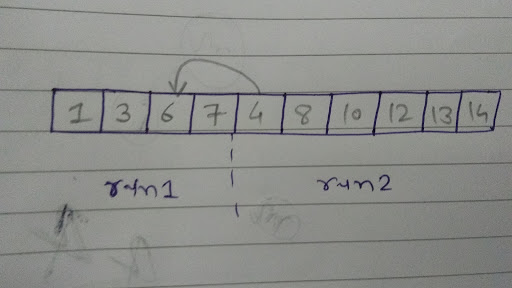 1 3 6 7 4 8 10 12 13 14
run1 run2